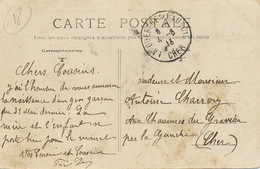 18
CARTE POSTALE
Correspondance
CHER
Chers Cousins
j'ai l'honneur de vous annoncer
la naissance d'un gros garçon
du 31 Mai dernier. La
mère et l'enfant se
porte bien pour le moment
Vos Cousins et Cousine
Madame et Monsieur
Antoine Charroy
Aux Chaumes du Gravier
par la Guerche
(Cher)